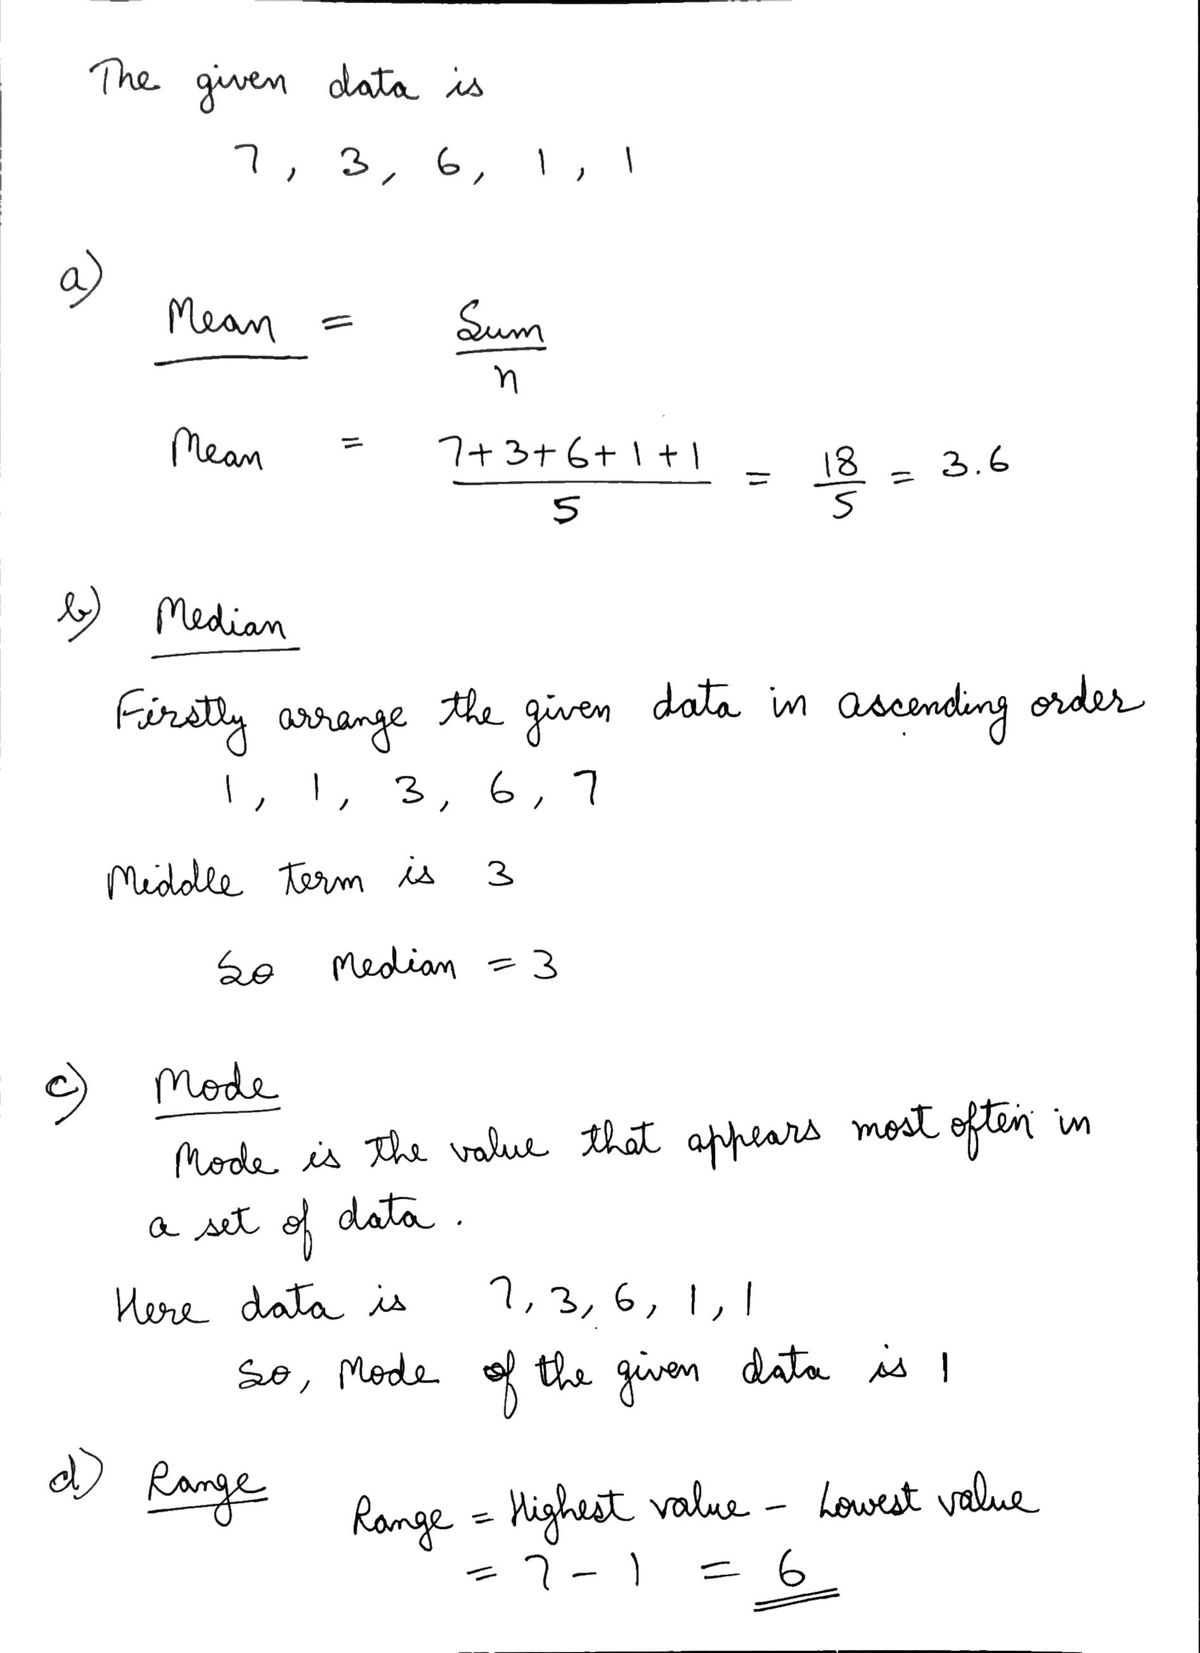 The given data is
7, 3, 6, 1, 1
a)
Mean = Sum
n
Mean = 7+3+6+1+1 = 18 = 3.6
5 5
b) Median
Firstly arrange the given data in ascending order
1, 1, 3, 6, 7
Middle term is 3
So Median = 3
c) Mode
Mode is the value that appears most often in
a set of data.
Here data is 7, 3, 6, 1, 1
So, Mode of the given data is 1
d) Range
Range = Highest value - Lowest value
= 7 - 1 = 6